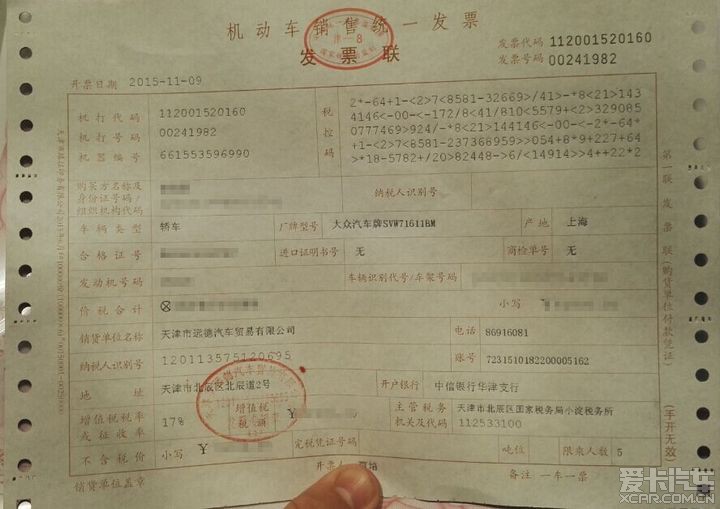 机动车销售统一发票
发票联
发票代码 112001520160
发票号码 00241982
开票日期 2015-11-09
机打代码 112001520160
机打号码 00241982
机器编号 661553596990
税控码
2*-64+1-<2>7<8581-32669>/41>-*8<21>143
4146<-00<-172/8<41/810<5579+<2>329085
0777469>924/-*8<21>144146<-00-<-2*-64*
+1-<2>7<8581-237368959>>054+8*9+227+64
>*18-5782+/20>82448->6/<14914>>4++22*2
购买方名称及身份证号码/组织机构代码
纳税人识别号
车辆类型 轿车 厂牌型号 大众汽车牌SVW71611BM 产地 上海
合格证号 进口证明书号 无 商检单号 无
发动机号码 车辆识别代号/车架号码
价税合计 ⊗ 小写 ¥
销货单位名称 天津市远德汽车贸易有限公司 电话 86916081
纳税人识别号 120113575120695 账号 7231510182200005162
地址 天津市北辰区北辰道2号 开户银行 中信银行华津支行
增值税税率或征收率 17% ¥ 主管税务机关及代码 天津市北辰区国家税务局小淀税务所
112533100
不含税价 小写 ¥ 完税凭证号码 吨位 限乘人数 5
销货单位盖章 开票人 备注 一车一票
第一联 发票联(购货单位付款凭证)
(手开无效)
增值税
爱卡汽车
XCAR.COM.CN